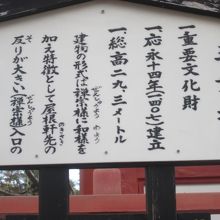 一、重要文化財
一、応永十四年(一四〇七)建立
一、総高二九、三メートル
建物の形式は禅宗様に和様を
わよう
加え特徴として屋根軒先の
のきさき
反りが大きい
(禅宗様)入口の
ぜんしゅうよう